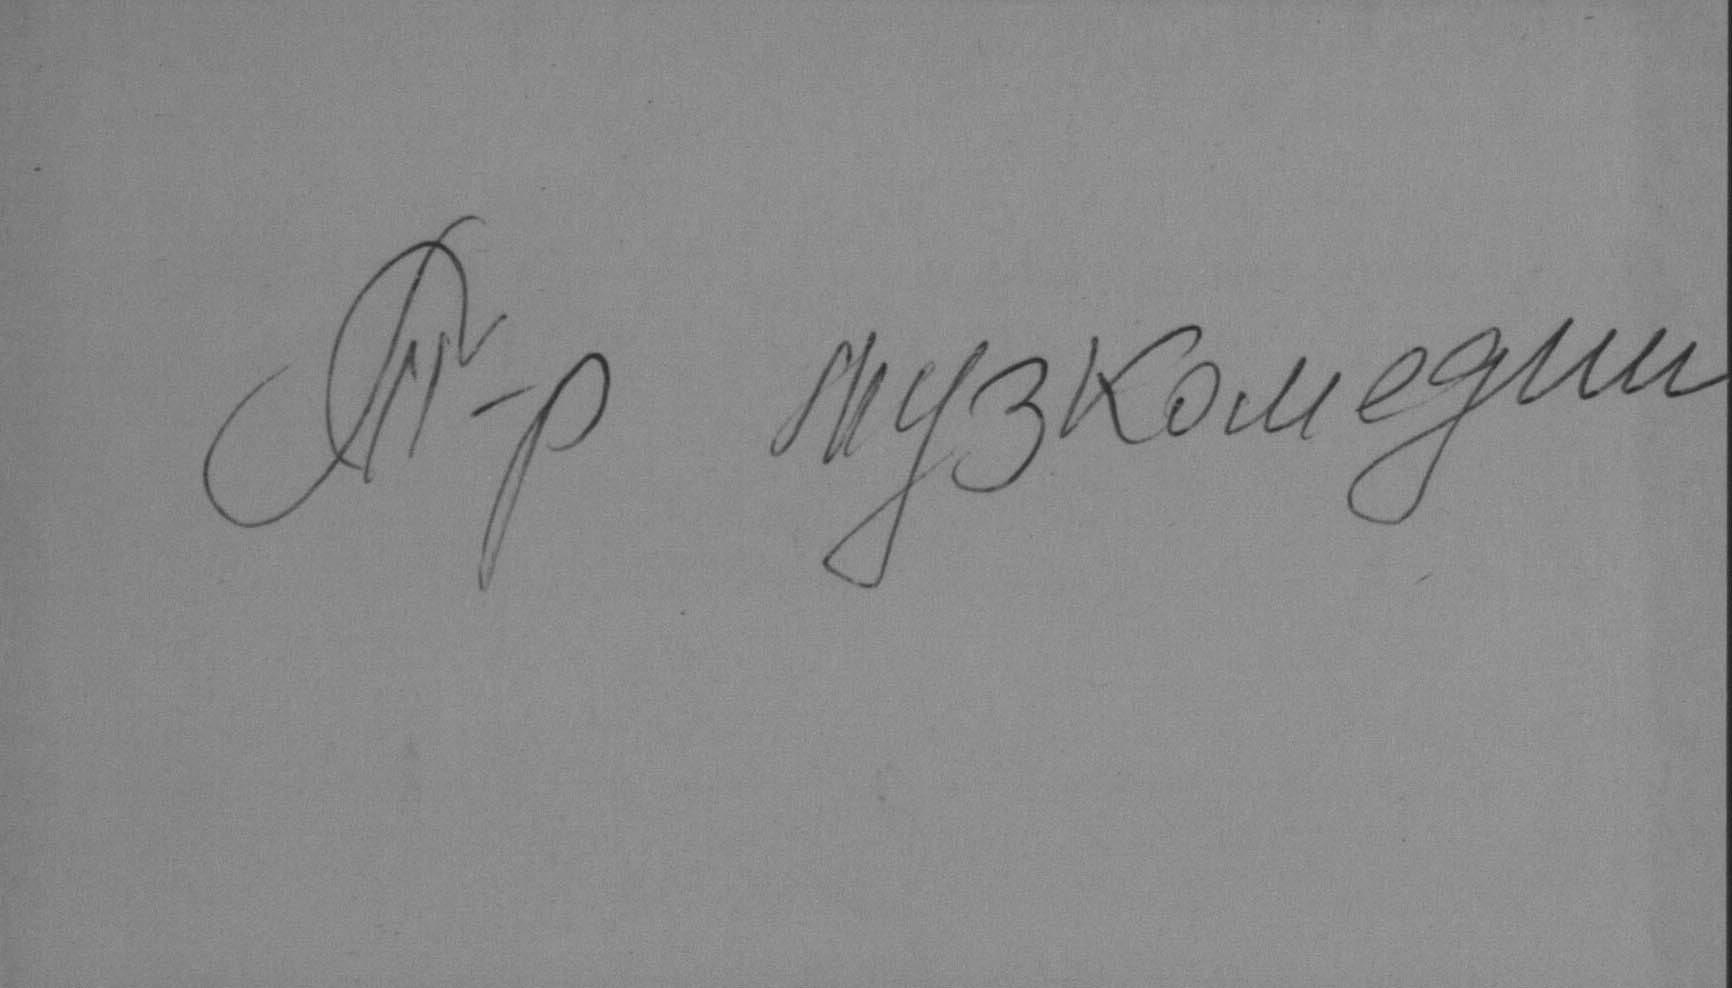 Т-р музкомедии